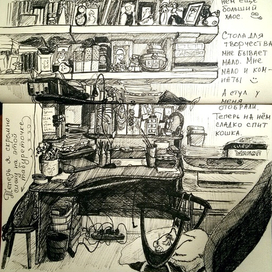 нём ещё
больший
хаос.
Стола для
творчества
мне бывает
мало. Мне
мало и ком-
наты!
А стул у
меня
отобрали.
Теперь на нём
сладко спит
кошка.
Теперь я скромно
сижу на этой
табуреточке.